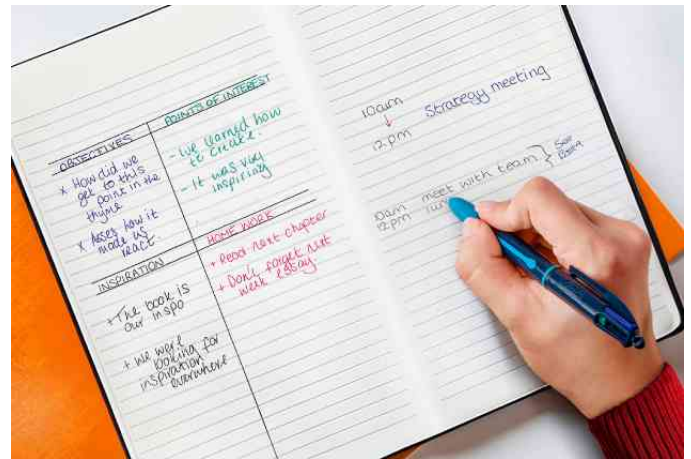 OBJECTIVES
x How did we
get to this
point in the
thyme
x Asses how it
made us
react
POINTS OF INTEREST
- We learned how
to create.
- It was very
inspiring
INSPIRATION
+ The book is
our inspo
+ We were
looking for
inspiration
everwhere
HOME WORK
+ Read next chapter
+ Don't forget next
week essay
10am
↓
12pm
Strategy meeting
10am meet with team }
12pm